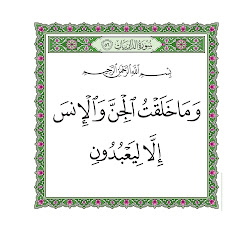 سُورَةُ الذَّارِيَاتِ
بِسْمِ اللَّهِ الرَّحْمَٰنِ الرَّحِيمِ
وَمَا خَلَقْتُ ٱلْجِنَّ وَٱلْإِنسَ
إِلَّا لِيَعْبُدُونِ